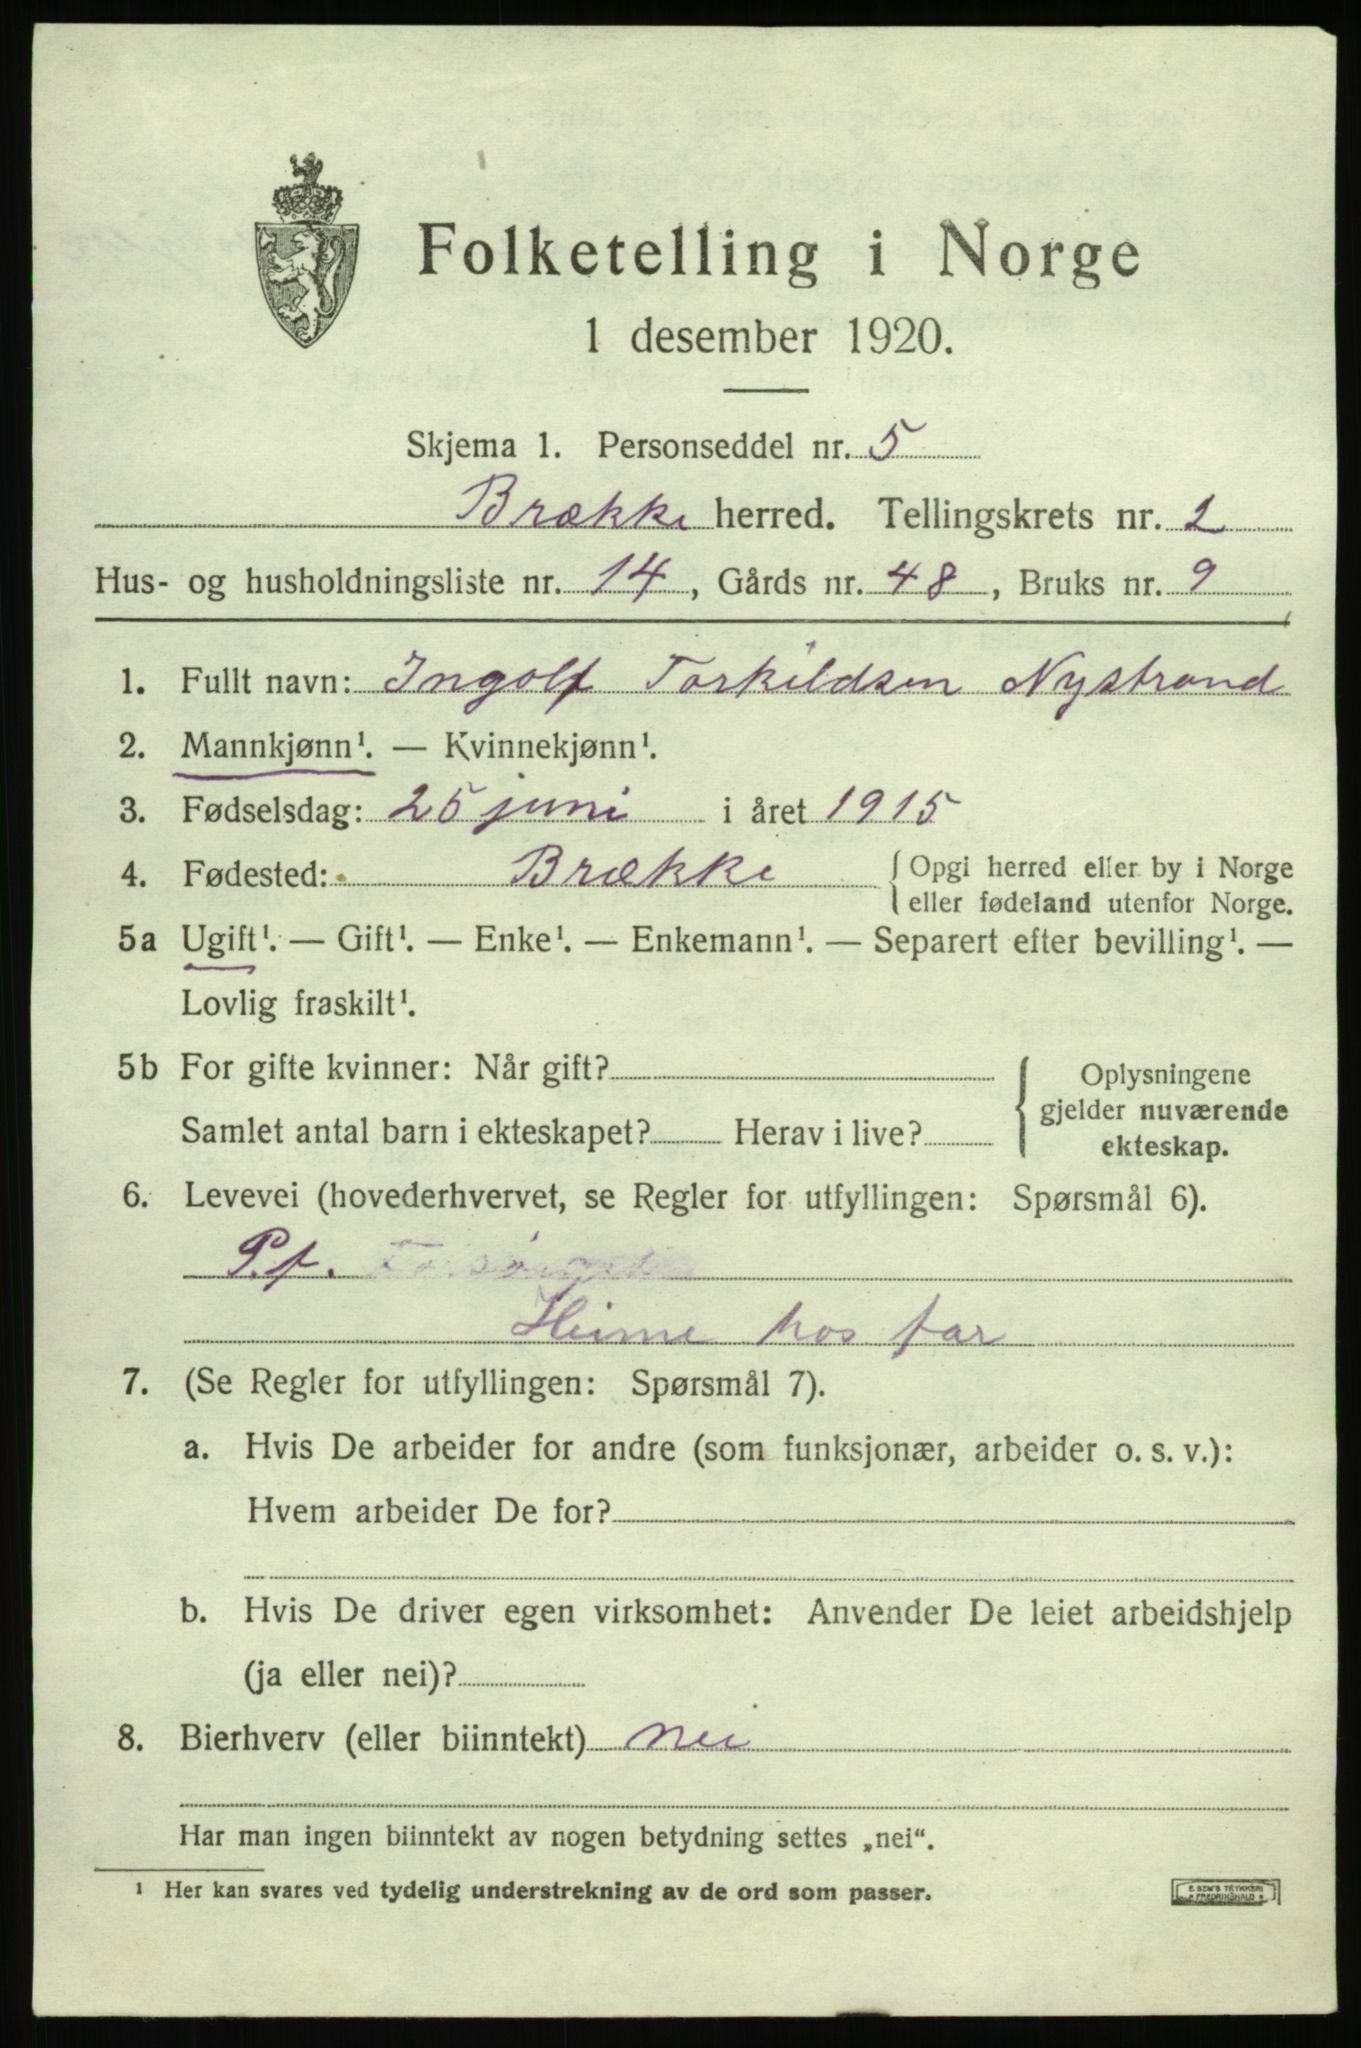 Folketelling i Norge
1 desember 1920.
Skjema 1. Personseddel nr. 5
Brække herred. Tellingskrets nr. 2
Hus- og husholdningsliste nr. 14, Gårds nr. 48, Bruks nr. 9
1. Fullt navn: Ingolf Torkildsen Nystrand
2. Mannkjønn¹. — Kvinnekjønn¹.
3. Fødselsdag: 25 juni i året 1915
4. Fødested: Brække { Opgi herred eller by i Norge
eller fødeland utenfor Norge.
5a Ugift¹. — Gift¹. — Enke¹. — Enkemann¹. — Separert efter bevilling¹. —
Lovlig fraskilt¹.
5b For gifte kvinner: Når gift?
Samlet antal barn i ekteskapet? Herav i live?
{ Oplysningene
gjelder nuværende
ekteskap.
6. Levevei (hovederhvervet, se Regler for utfyllingen: Spørsmål 6).
P.f.
Heime hos far
7. (Se Regler for utfyllingen: Spørsmål 7).
a. Hvis De arbeider for andre (som funksjonær, arbeider o. s. v.):
Hvem arbeider De for?
b. Hvis De driver egen virksomhet: Anvender De leiet arbeidshjelp
(ja eller nei)?
8. Bierhverv (eller biinntekt) nei
Har man ingen biinntekt av nogen betydning settes „nei“.
¹ Her kan svares ved tydelig understrekning av de ord som passer.
E. SEM'S TRYKKERI
FREDRIKSHALD